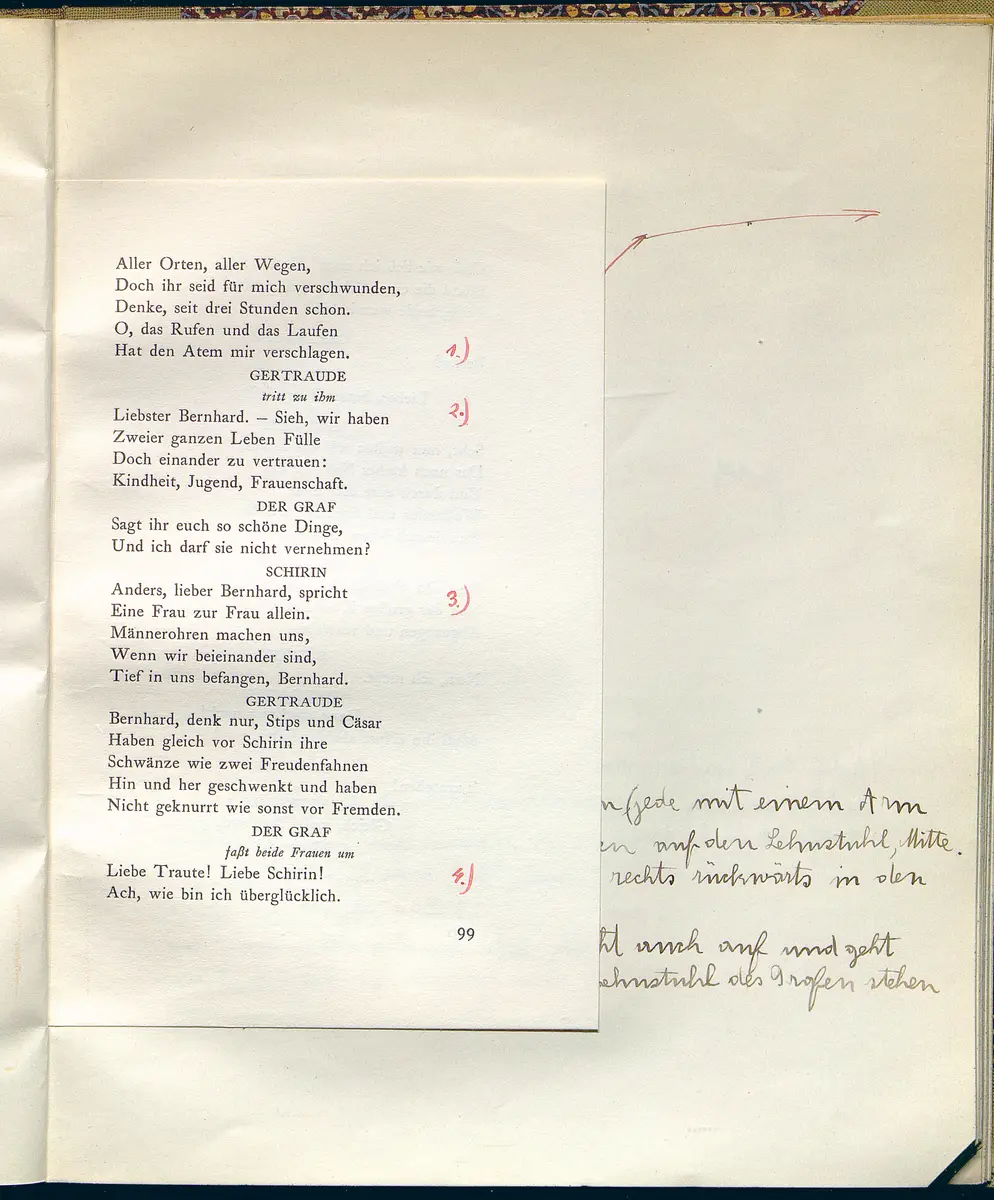 Aller Orten, aller Wegen,
Doch ihr seid für mich verschwunden,
Denke, seit drei Stunden schon.
O, das Rufen und das Laufen
Hat den Atem mir verschlagen. 1.)
GERTRAUDE
tritt zu ihm
Liebster Bernhard. — Sieh, wir haben 2.)
Zweier ganzen Leben Fülle
Doch einander zu vertrauen:
Kindheit, Jugend, Frauenschaft.
DER GRAF
Sagt ihr euch so schöne Dinge,
Und ich darf sie nicht vernehmen?
SCHIRIN
Anders, lieber Bernhard, spricht 3.)
Eine Frau zur Frau allein.
Männerohren machen uns,
Wenn wir beieinander sind,
Tief in uns befangen, Bernhard.
GERTRAUDE
Bernhard, denk nur, Stips und Cäsar
Haben gleich vor Schirin ihre
Schwänze wie zwei Freudenfahnen
Hin und her geschwenkt und haben
Nicht geknurrt wie sonst vor Fremden.
DER GRAF
faßt beide Frauen um
Liebe Traute! Liebe Schirin! 4.)
Ach, wie bin ich überglücklich.
99
n (jede mit einem Arm
en auf den Lehnstuhl, Mitte.
rechts rückwärts in den
ht auch auf und geht
ehnstuhl des Grafen stehen